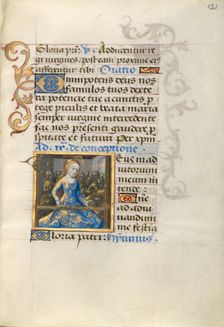 Gloria pri. V. Adducentur re
gi virgines post eam proxime ei
afferentur tibi Oratio
Omnipotens deus nos
famulos tuos dexte
ra potencie tue a cunctis p
periculis et beata maria
semper virgine intercedente
fac nos presenti gaudere p
spicate et futura per xpm
Ad de conceptione
Deus in ad
iutorium
meum in
tende
Dne
ad ad iu
uandum
me festi
Gloria patri Hymnus